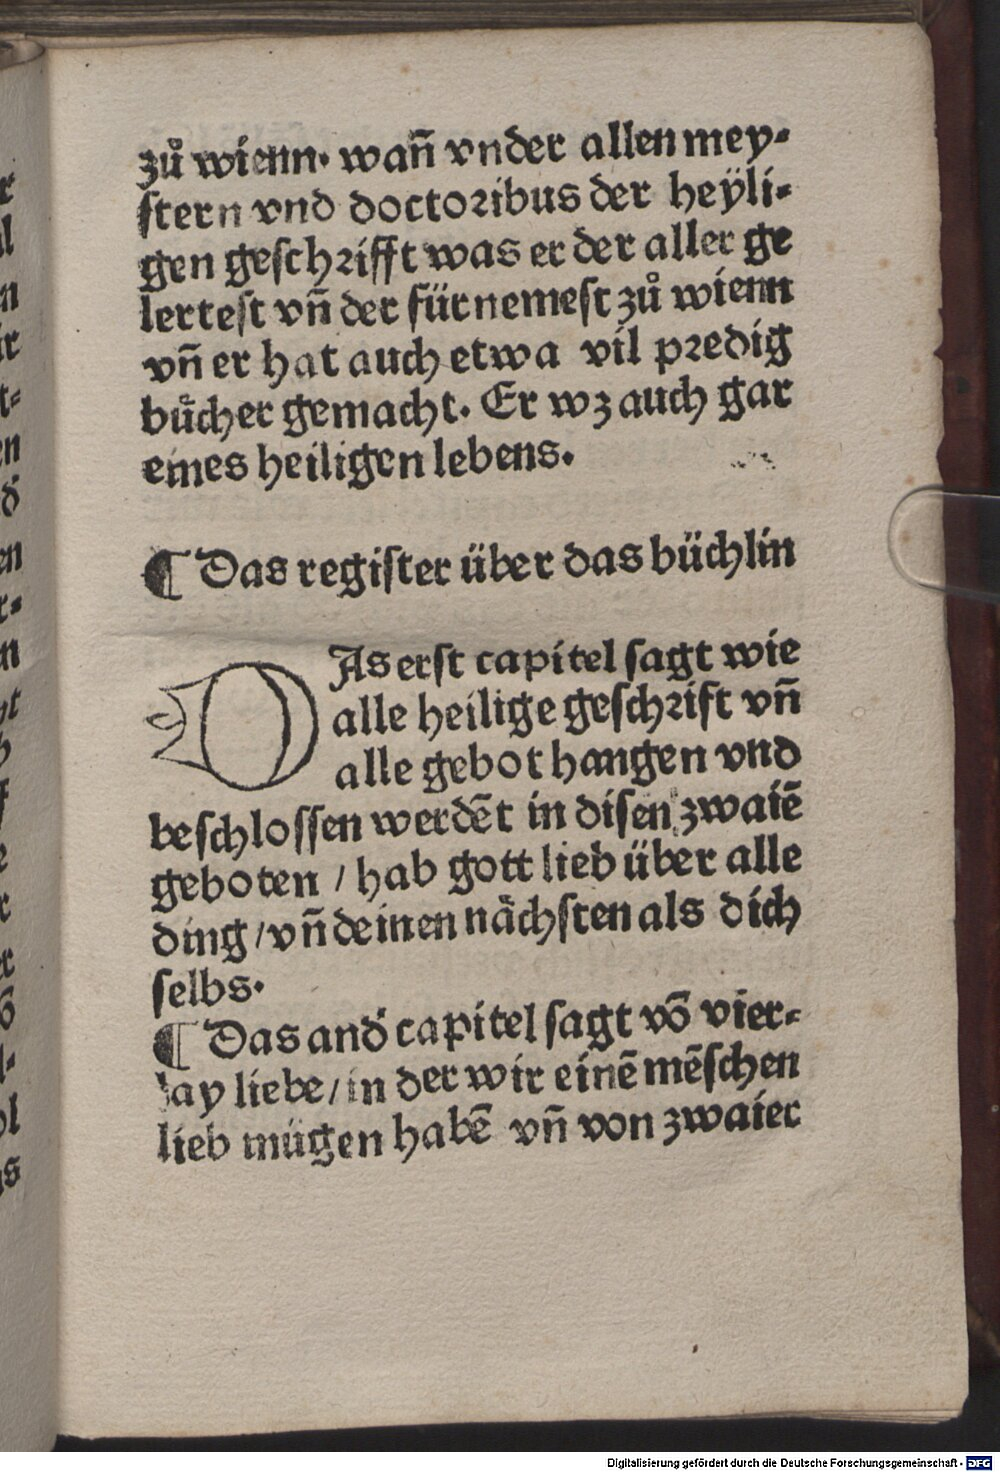 zů wienn. wañ vnder allen mey-
stern vnd doctoribus der heÿli-
gen geschrifft was er der aller ge
lertest vñ der fürnemest zů wienn
vñ er hat auch etwa vil predig
bůcher gemacht. Er wz auch gar
eines heiligen lebens.
¶ Das register über das büchlin
DAs erst capitel sagt wie
alle heilige geschrift vñ
alle gebot hangen vnd
beschlossen werdēt in disen zwaiē
geboten / hab gott lieb über alle
ding / vñ deinen nächsten als dich
selbs.
¶ Das and̄ capitel sagt vō vier-
lay liebe / in der wir einē mēschen
lieb mügen habē vñ von zwaier
Digitalisierung gefördert durch die Deutsche Forschungsgemeinschaft - DFG